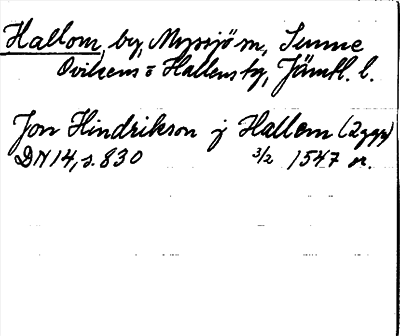 Hallom, by, Myssjö sn, Sunne
Ovikens o Hallens tg, Jämtl. l.
Jon Hindrikson j Hallom (2 ggr)
DN 14, s. 830 3/2 1547 or.